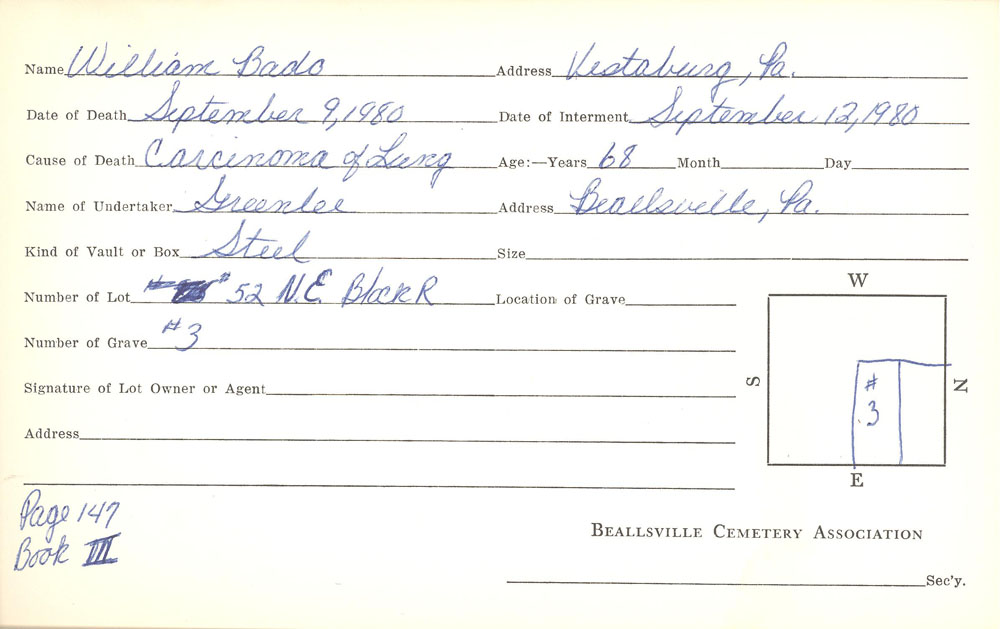 Name William Bado Address Vestaburg, Pa.
Date of Death September 9, 1980 Date of Interment September 12, 1980
Cause of Death Carcinoma of Lung Age:—Years 68 Month Day
Name of Undertaker Greenlee Address Beallsville, Pa.
Kind of Vault or Box Steel Size
Number of Lot # 52 N.E. Block R Location of Grave
W
Number of Grave #3
S # 3 N
Signature of Lot Owner or Agent
Address
E
Page 147
Book III
BEALLSVILLE CEMETERY ASSOCIATION
Sec'y.